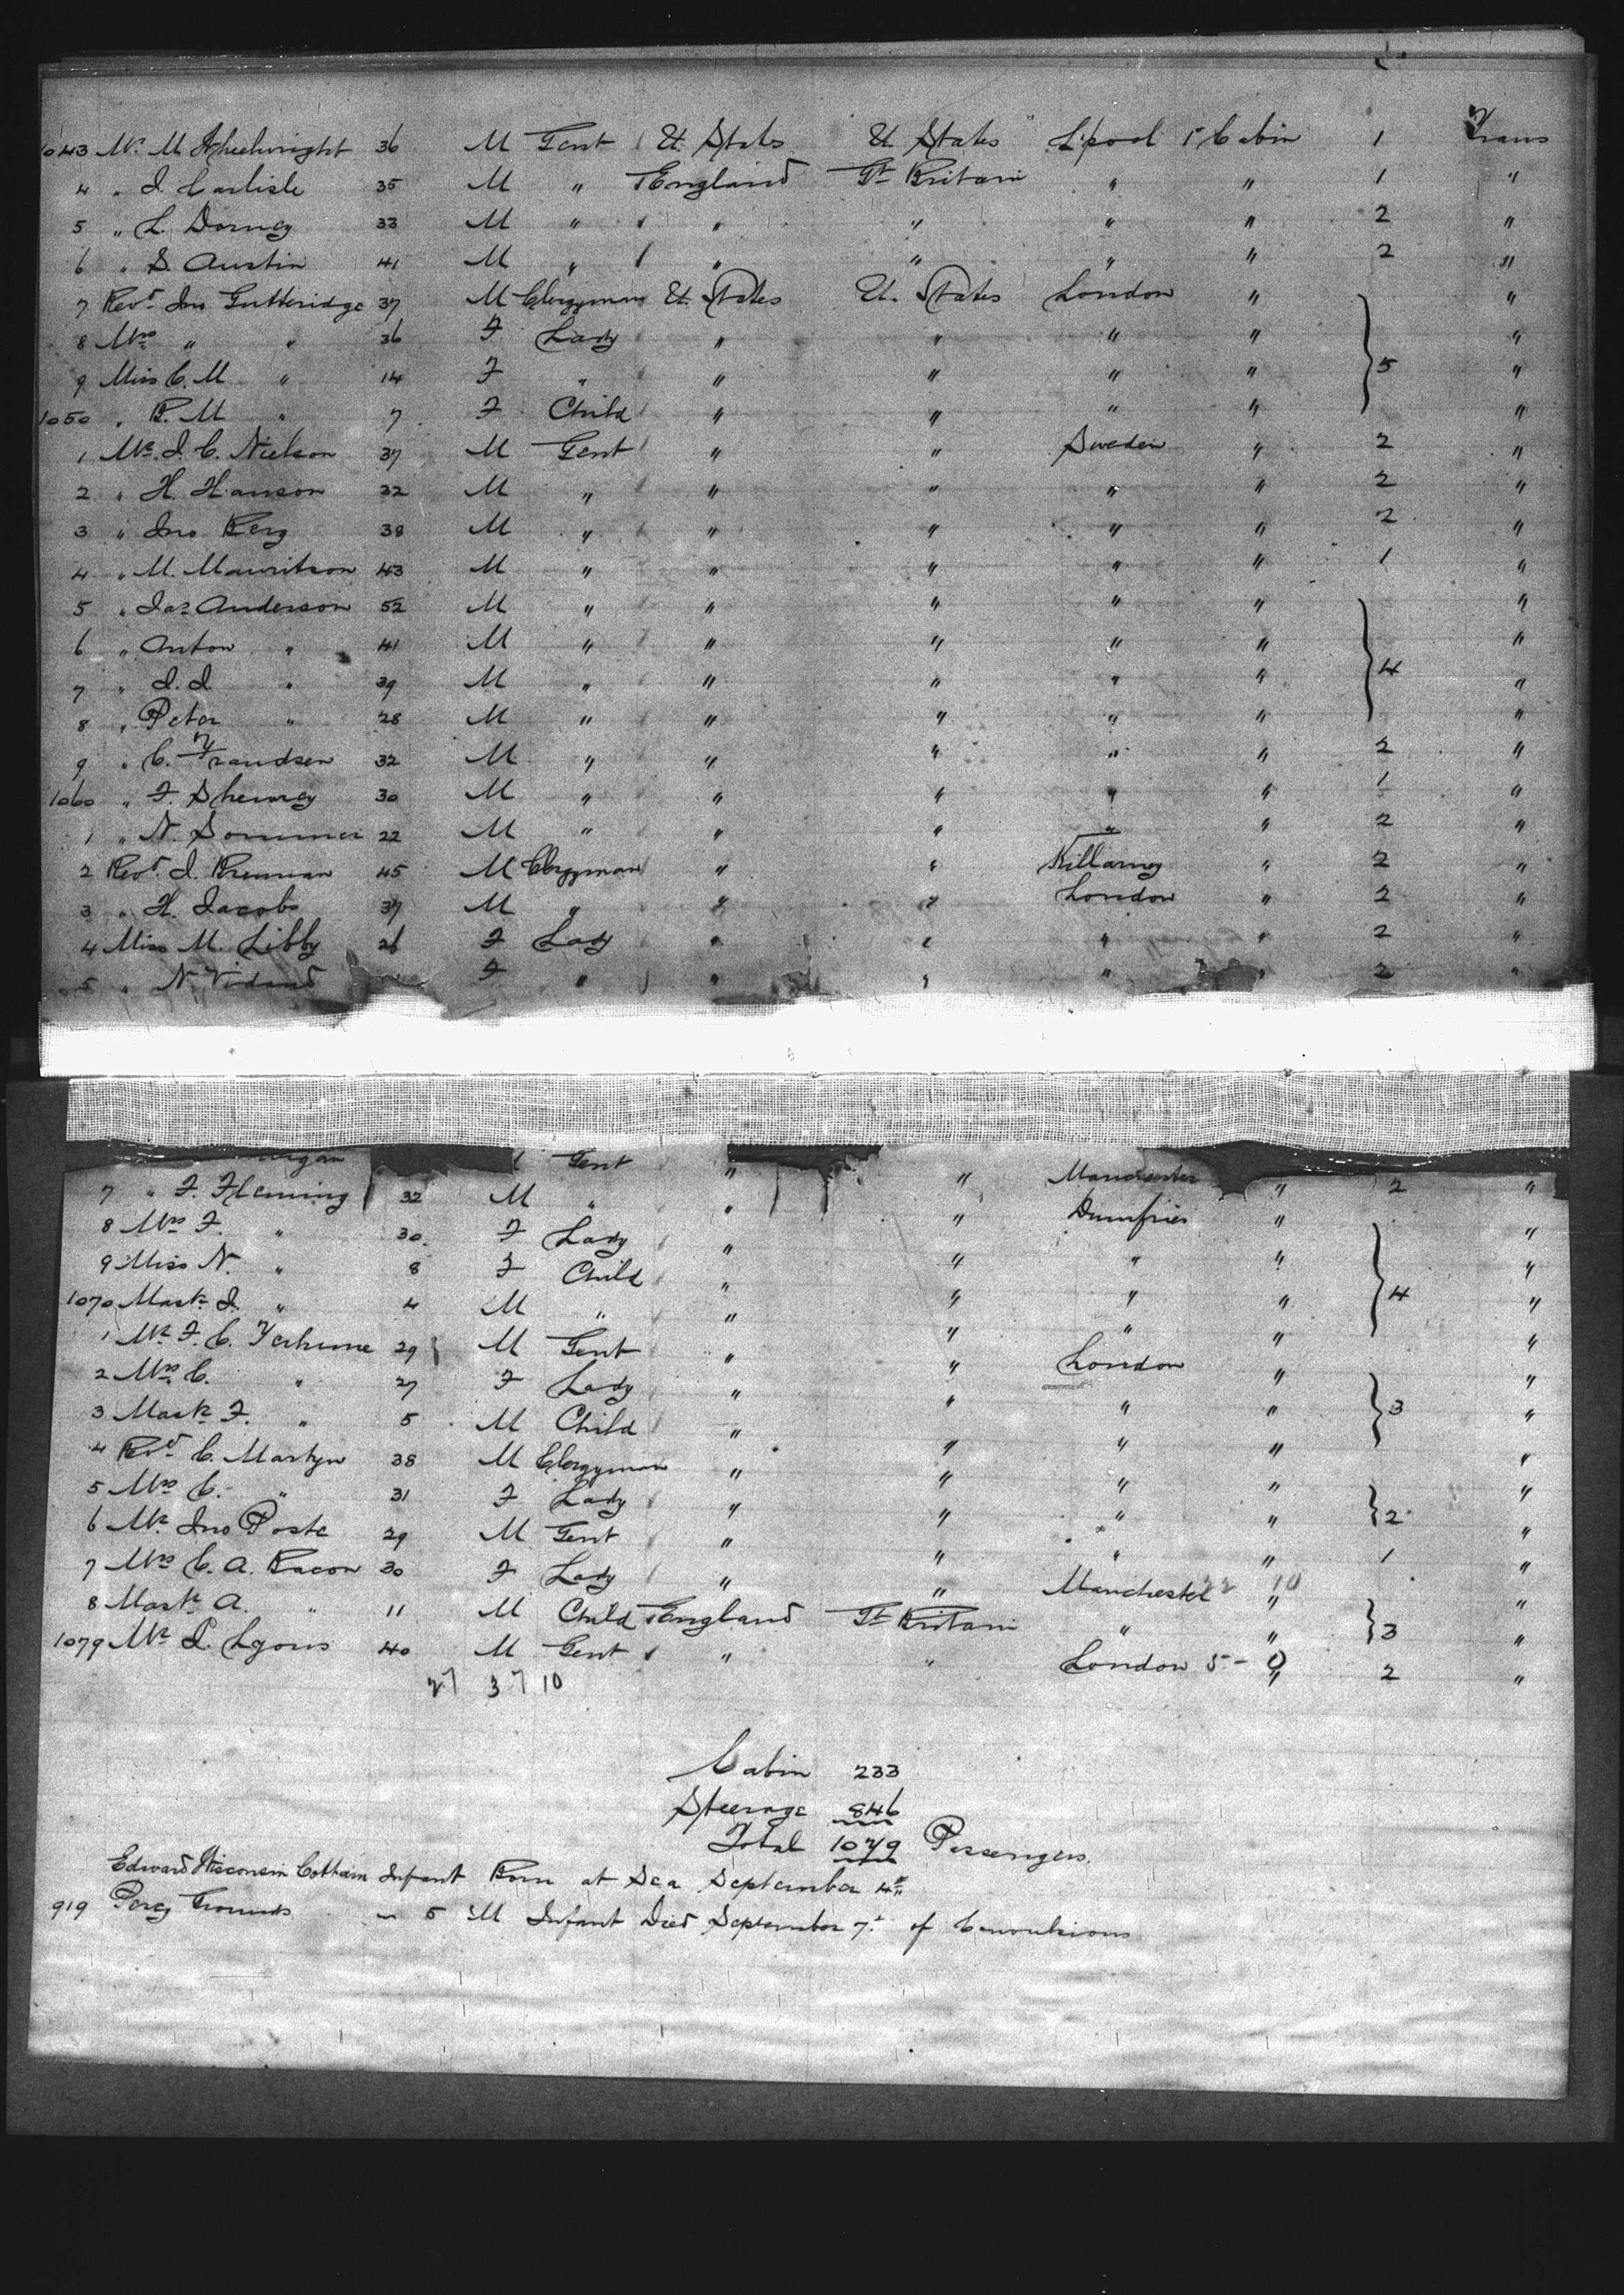 1043 Mr. M Wheelwright 36 M Gent U. States U. States L'pool 1st Cabin 1 Trans
4 " J. Carlisle 35 M " England Gt Britain " " 1 "
5 " L. Dorney 33 M " " " " " 2 "
6 " S. Austin 41 M " " " " " 2 "
7 Revd. Jno Gutteridge 37 M Clergyman U. States U. States London " "
8 Mrs " " 36 F Lady " " " " "
9 Miss C. M " 14 F " " " " " 5 "
1050 " R. M " 7 F Child " " " " "
1 Mr. J. C. Nielson 37 M Gent " " Sweden " 2 "
2 " H. Hanson 32 M " " " " " 2 "
3 " Jno Berg 38 M " " " " " 2 "
4 " M. Mauritson 43 M " " " " " 1 "
5 " Jas Anderson 52 M " " " " " "
6 " Anton " 41 M " " " " " "
7 " J. J. " 39 M " " " " " 4 "
8 " Peter " 28 M " " " " " "
9 " C. Frandsen 32 M " " " " " 2 "
1060 " F. 30 M " " " " " 1 "
1 " N. Sommer 22 M " " " " " 2 "
2 Revd. J. Brennan 45 M Clergyman " " Killarney " 2 "
3 " H. Jacobs 37 M " " " London " 2 "
4 Miss M. Libby 26 F Lady " " " " 2 "
5 " N. F " " " " " 2 "
Gent " " Manchester " 2 "
7 " F. Fleming 32 M " " " Dumfries " "
8 Mrs F. " 30 F Lady " " " " "
9 Miss N. " 8 F Child " " " " 4 "
1070 Mastr J. " 4 M " " " " " "
1 Mr. F. C. 29 M Gent " " London " "
2 Mrs C. " 27 F Lady " " " " 3 "
3 Mastr F. " 5 M Child " " " " "
4 Revd C. Martyn 38 M Clergyman " " " " "
5 Mrs C. " 31 F Lady " " " " 2 "
6 Mr Jno Poste 29 M Gent " " " " 1 "
7 Mrs C. A. Bacon 30 F Lady " " Manchester " "
8 Mastr A. " 11 M Child England Gt Britain " " 3 "
1079 Mr J. Lyons 40 M Gent " " London 5 - 0 " 2 "
27 37 10
Cabin 233
Steerage 846
Total 1079 Passengers.
Edward Wisconsin Cottam Infant Born at Sea September 4th
919 Percy Grounds — 5 M Infant Died September 7th of Convulsions